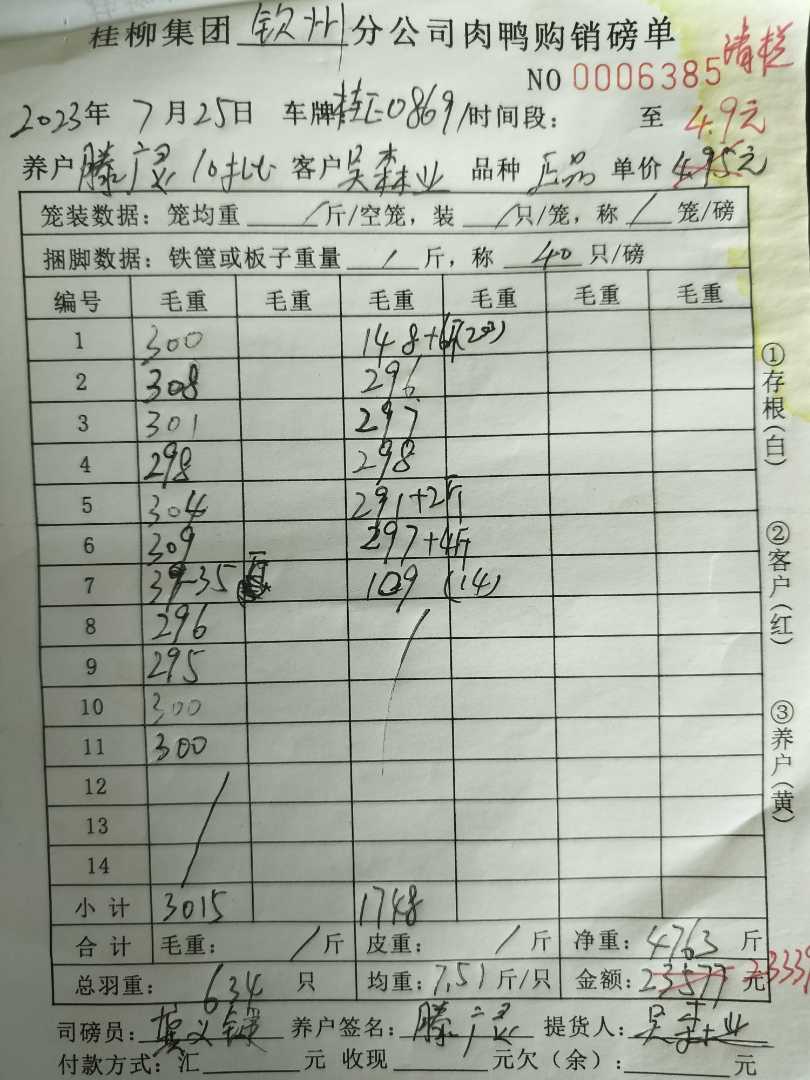 桂柳集团 钦州 分公司肉鸭购销磅单
NO 0006385 清楚
2023年 7月25日 车牌桂E0869 时间段: 至 4.9元
养户 滕广灵 10批 客户 吴森业 品种 正品 单价 4.95元
笼装数据:笼均重 / 斤/空笼,装 / 只/笼,称 / 笼/磅
捆脚数据:铁筐或板子重量 / 斤,称 40 只/磅
编号 毛重 毛重 毛重 毛重 毛重 毛重
1 300 148+6斤(20)
2 308 296
3 301 297
4 298 298
5 304 291+2斤
6 309 297+4斤
7 39-35斤 109 (14)
8 296 /
9 295
10 300
11 300
12 /
13
14
小计 3015 1748
合计 毛重: / 斤 皮重: / 斤 净重: 4763 斤
总羽重: 634 只 均重: 7.51 斤/只 金额: 23577 元 23339
司磅员: 养户签名: 滕广灵 提货人: 吴森业
付款方式:汇 元 收现 元欠(余): 元
①存根(白)
②客户(红)
③养户(黄)